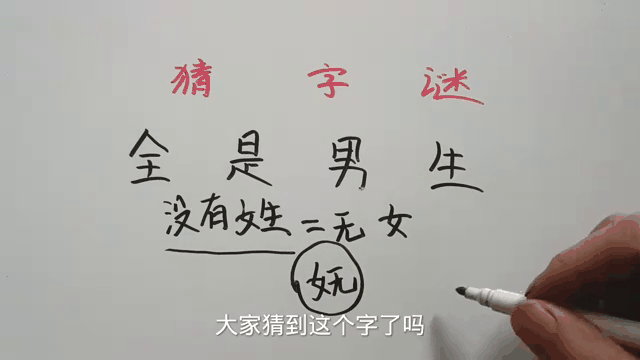 猜字谜
全是男生
没有女生=无女
妩
大家猜到这个字了吗